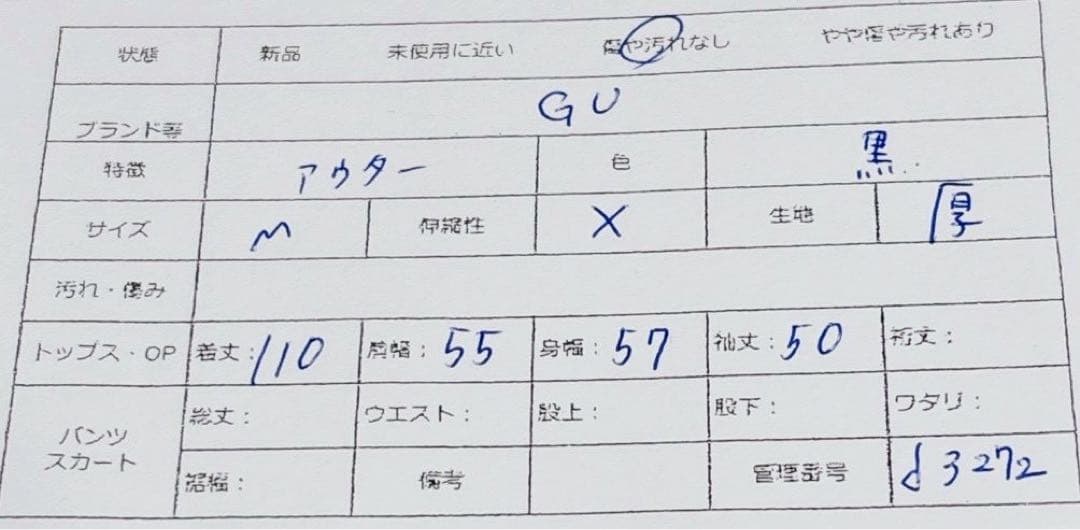 状態 新品 未使用に近い 傷や汚れなし やや傷や汚れあり
ブランド等 GU
特徴 アウター 色 黒.
サイズ M 伸縮性 X 生地 厚
汚れ・傷み
トップス・OP 着丈:110 肩幅:55 身幅:57 袖丈:50 裄丈:
パンツ スカート 総丈: ウエスト: 股上: 股下: ワタリ:
裾幅: 備考 管理番号 d3272